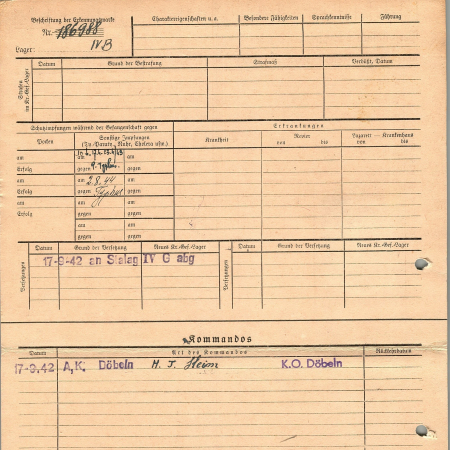 Beschriftung der Erkennungsmarke
Nr. 186988
Lager: IVB
Charaktereigenschaften u. a.
Besondere Fähigkeiten
Sprachkenntnisse
Führung
Strafen im Kr.-Gef.-Lager
Datum
Grund der Bestrafung
Strafmaß
Verbüßt, Datum
Schutzimpfungen während der Gefangenschaft gegen
Erkrankungen
Pocken
Sonstige Impfungen
(Ty.-Paraty., Ruhr, Cholera usw.)
Krankheit
Revier
von bis
Lazarett — Krankenhaus
von bis
am am am
Erfolg gegen gegen
am am 2.8.44 am
Erfolg gegen Typhus gegen
am am am
Erfolg gegen gegen
gegen gegen
Versetzungen
Datum
Grund der Versetzung
Neues Kr.-Gef.-Lager
Versetzungen
Datum
Grund der Versetzung
Neues Kr.-Gef.-Lager
17-9-42 an Stalag IV G abg
Kommandos
Datum
Art des Kommandos
Rückkehrdatum
17-9.42 A,K. Döbeln H. J. Heim K.O. Döbeln